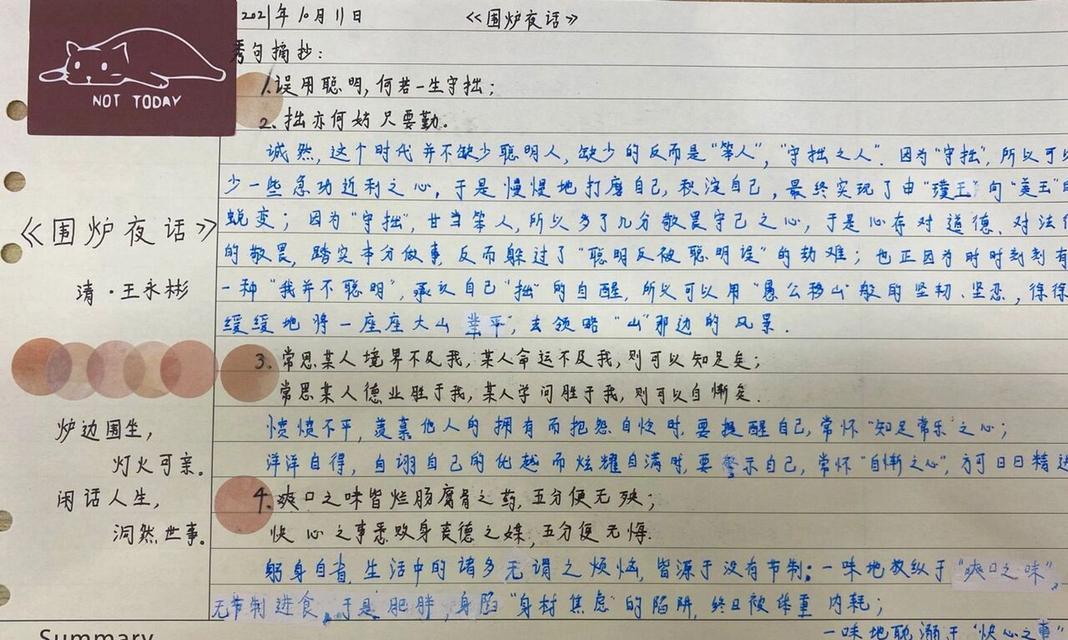 NOT TODAY
2021年10月11日
《围炉夜话》
秀句摘抄:
1.误用聪明,何若一生守拙;
2.拙亦何妨只要勤.
诚然,这个时代并不缺少聪明人,缺少的反而是"笨人","守拙之人".因为"守拙",所以可以
少一些急功近利之心,于是慢慢地打磨自己,积淀自己,最终实现了由"璞玉"向"美玉"的
蜕变;因为"守拙",甘当笨人,所以多了几分敬畏守己之心,于是心存对道德、对法律
的敬畏,踏实本分做事,反而躲过了"聪明反被聪明误"的劫难;也正因为时时刻刻有
一种"我并不聪明",承认自己"拙"的自醒,所以可以用"愚公移山"般的坚韧、坚忍,徐徐
缓缓地将一座座大山"垄平",去领略"山"那边的风景.
3.常思某人境界不及我,某人命运不及我,则可以知足矣;
常思某人德业胜于我,某人学问胜于我,则可以自惭矣.
愤愤不平,羡慕他人的拥有而抱怨自忱时,要提醒自己,常怀"知足常乐"之心;
洋洋自得,自诩自己的优越而炫耀自满时,要警示自己,常怀"自惭之心",方可日日精进
4.爽口之味皆烂肠腐骨之药,五分便无殃;
快心之事悉败身丧德之媒,五分便无悔.
躬身自省,生活中的诸多无谓之烦恼,皆源于没有节制:一味地放纵于"爽口之味",
无节制进食,于是肥胖,身陷"身材焦虑"的陷阱,终日被体重内耗;
一味地耽溺于"快心之事"
《围炉夜话》
清·王永彬
炉边围坐,
灯火可亲。
闲话人生,
洞然世事。
Summary